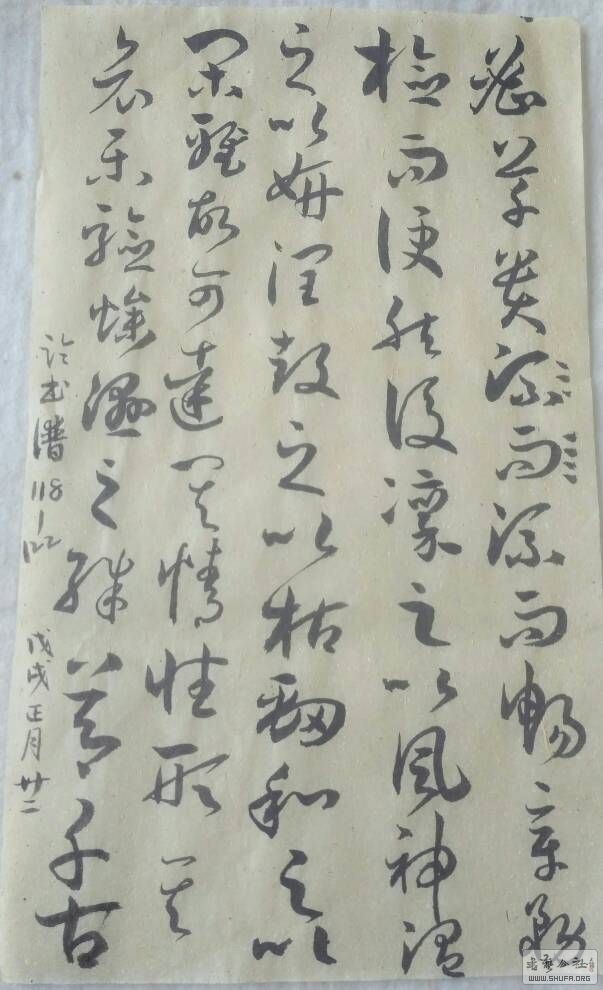 密草貴流而流而暢章務
檢而便然後凛之以風神溫
之以妍潤鼓之以枯勁和之以
閑雅故可達其情性形其
哀樂驗燥濕之殊節千古
书谱118-122
戊戌正月廿二
書藝公社
WWW.SHUFA.ORG